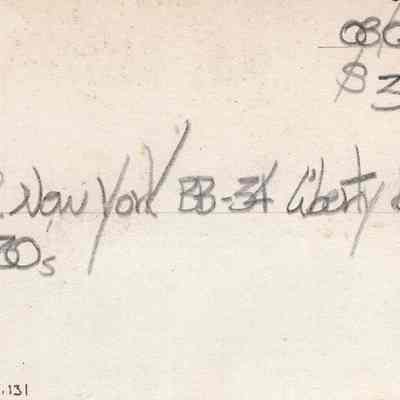 080
$ 3
. New York BB-34 liberty
30s
.131